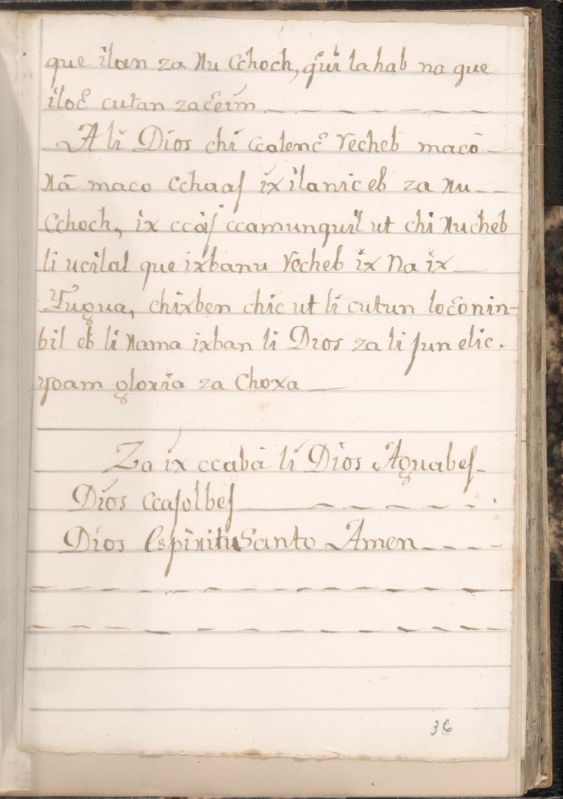 que ilan za nu cchoch, qui lahab na que
iloc̃ cutan zac̃eim
A li Dios chi ccalenc̃ recheb macō
nā maco cchaas ix ilanic eb za nu
cchoch, ix ccàs ccamunquil ut chi nucheb
li ucilal que ixbanu recheb ix na ix
Yugua, chixben chic ut li cutun loc̃onin-
bil eb li nama ixban li Dios za li Jun elic.
yoam gloria za Choxa
Za ix ccabà li Dios Aguabes
Dios ccajolbes
Dios Espiritu Santo Amen
36